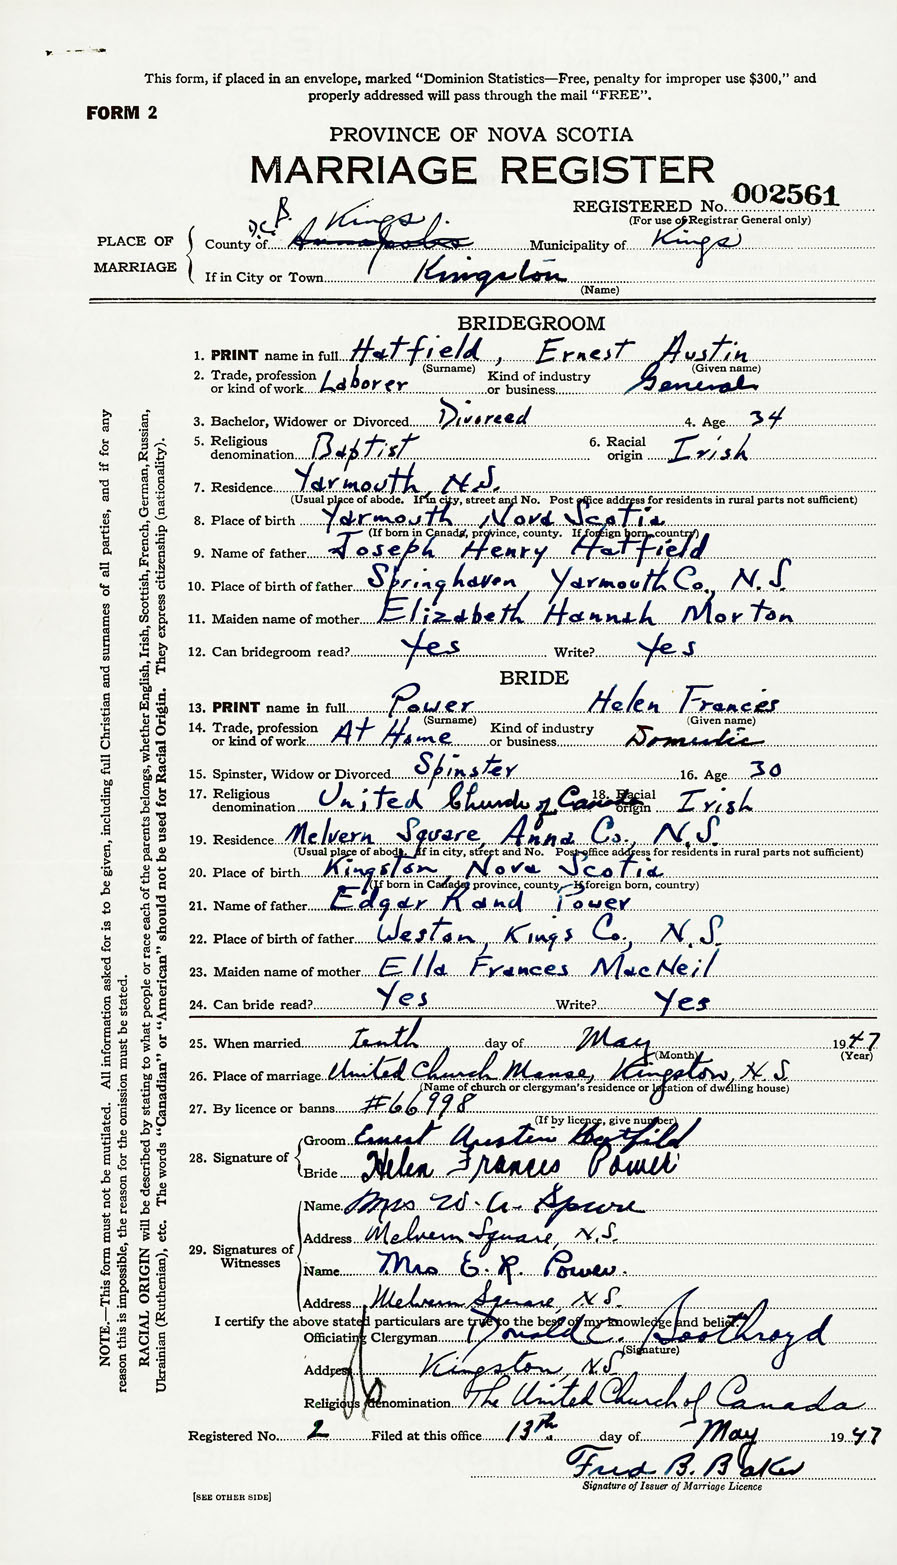 This form, if placed in an envelope, marked “Dominion Statistics—Free, penalty for improper use $300,” and
properly addressed will pass through the mail “FREE”.
FORM 2
PROVINCE OF NOVA SCOTIA
MARRIAGE REGISTER
REGISTERED No. 002561
(For use of Registrar General only)
PLACE OF MARRIAGE
Kings
County of Annapolis Municipality of Kings
If in City or Town Kingston
(Name)
BRIDEGROOM
1. PRINT name in full Hatfield, Ernest Austin
(Surname) (Given name)
2. Trade, profession or kind of work Laborer Kind of industry or business General
3. Bachelor, Widower or Divorced Divorced 4. Age 34
5. Religious denomination Baptist 6. Racial origin Irish
7. Residence Yarmouth, N.S.
(Usual place of abode. If in city, street and No. Post office address for residents in rural parts not sufficient)
8. Place of birth Yarmouth Nova Scotia
(If born in Canada, province, county. If foreign born, country)
9. Name of father Joseph Henry Hatfield
10. Place of birth of father Springhaven, Yarmouth Co., N.S.
11. Maiden name of mother Elizabeth Hannah Morton
12. Can bridegroom read? Yes Write? Yes
BRIDE
13. PRINT name in full Power Helen Frances
(Surname) (Given name)
14. Trade, profession or kind of work At Home Kind of industry or business Domestic
15. Spinster, Widow or Divorced Spinster 16. Age 30
17. Religious denomination United Church of Canada 18. Racial origin Irish
19. Residence Melvern Square, Anna Co., N.S.
(Usual place of abode. If in city, street and No. Post office address for residents in rural parts not sufficient)
20. Place of birth Kingston, Nova Scotia
(If born in Canada, province, county. If foreign born, country)
21. Name of father Edgar Rand Power
22. Place of birth of father Weston, Kings Co., N.S.
23. Maiden name of mother Ella Frances MacNeil
24. Can bride read? Yes Write? Yes
25. When married tenth day of May 1947
(Month) (Year)
26. Place of marriage United Church Manse, Kingston, N.S.
(Name of church or clergyman's residence or location of dwelling house)
27. By licence or banns #66998
(If by licence, give number)
28. Signature of Groom Ernest Austin Hatfield
Bride Helen Frances Power
29. Signatures of Witnesses
Name Mrs W. A. Spurr
Address Melvern Square, N.S.
Name Mrs E. R. Power.
Address Melvern Square, N.S.
I certify the above stated particulars are true to the best of my knowledge and belief.
Officiating Clergyman Donald C. Boothroyd
(Signature)
Address Kingston, N.S.
Religious denomination The United Church of Canada
Registered No. 2 Filed at this office 13th day of May 1947
Fred B. Baker
Signature of Issuer of Marriage Licence
[SEE OTHER SIDE]
NOTE.—This form must not be mutilated. All information asked for is to be given, including full Christian and surnames of all parties, and if for any
reason this is impossible, the reason for the omission must be stated.
RACIAL ORIGIN will be described by stating to what people or race each of the parents belongs, whether English, Irish, Scottish, French, German, Russian,
Ukrainian (Ruthenian), etc. The words “Canadian” or “American” should not be used for Racial Origin. They express citizenship (nationality).